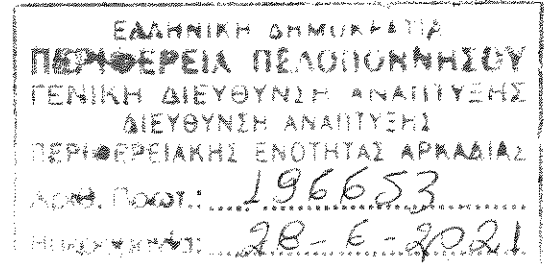 ΕΛΛΗΝΙΚΗ ΔΗΜΟΚΡΑΤΙΑ
ΠΕΡΙΦΕΡΕΙΑ ΠΕΛΟΠΟΝΝΗΣΟΥ
ΓΕΝΙΚΗ ΔΙΕΥΘΥΝΣΗ ΑΝΑΠΤΥΞΗΣ
ΔΙΕΥΘΥΝΣΗ ΑΝΑΠΤΥΞΗΣ
ΠΕΡΙΦΕΡΕΙΑΚΗΣ ΕΝΟΤΗΤΑΣ ΑΡΚΑΔΙΑΣ
Αριθ. Πρωτ.: 196653
Ημερομηνία: 28-6-2021